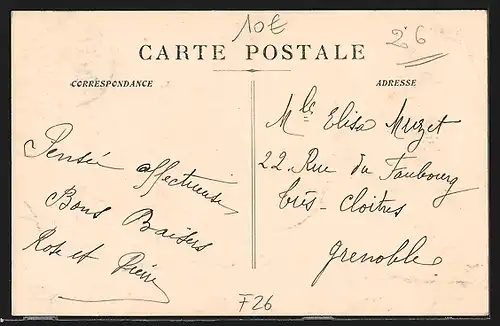 10€
26
CARTE POSTALE
CORRESPONDANCE
Pensée affectueuse
Bons Baisers
Rose et Pierre
ADRESSE
Mlle Elisa Muzet
22 Rue du Faubourg
très-Cloitres
Grenoble
F26